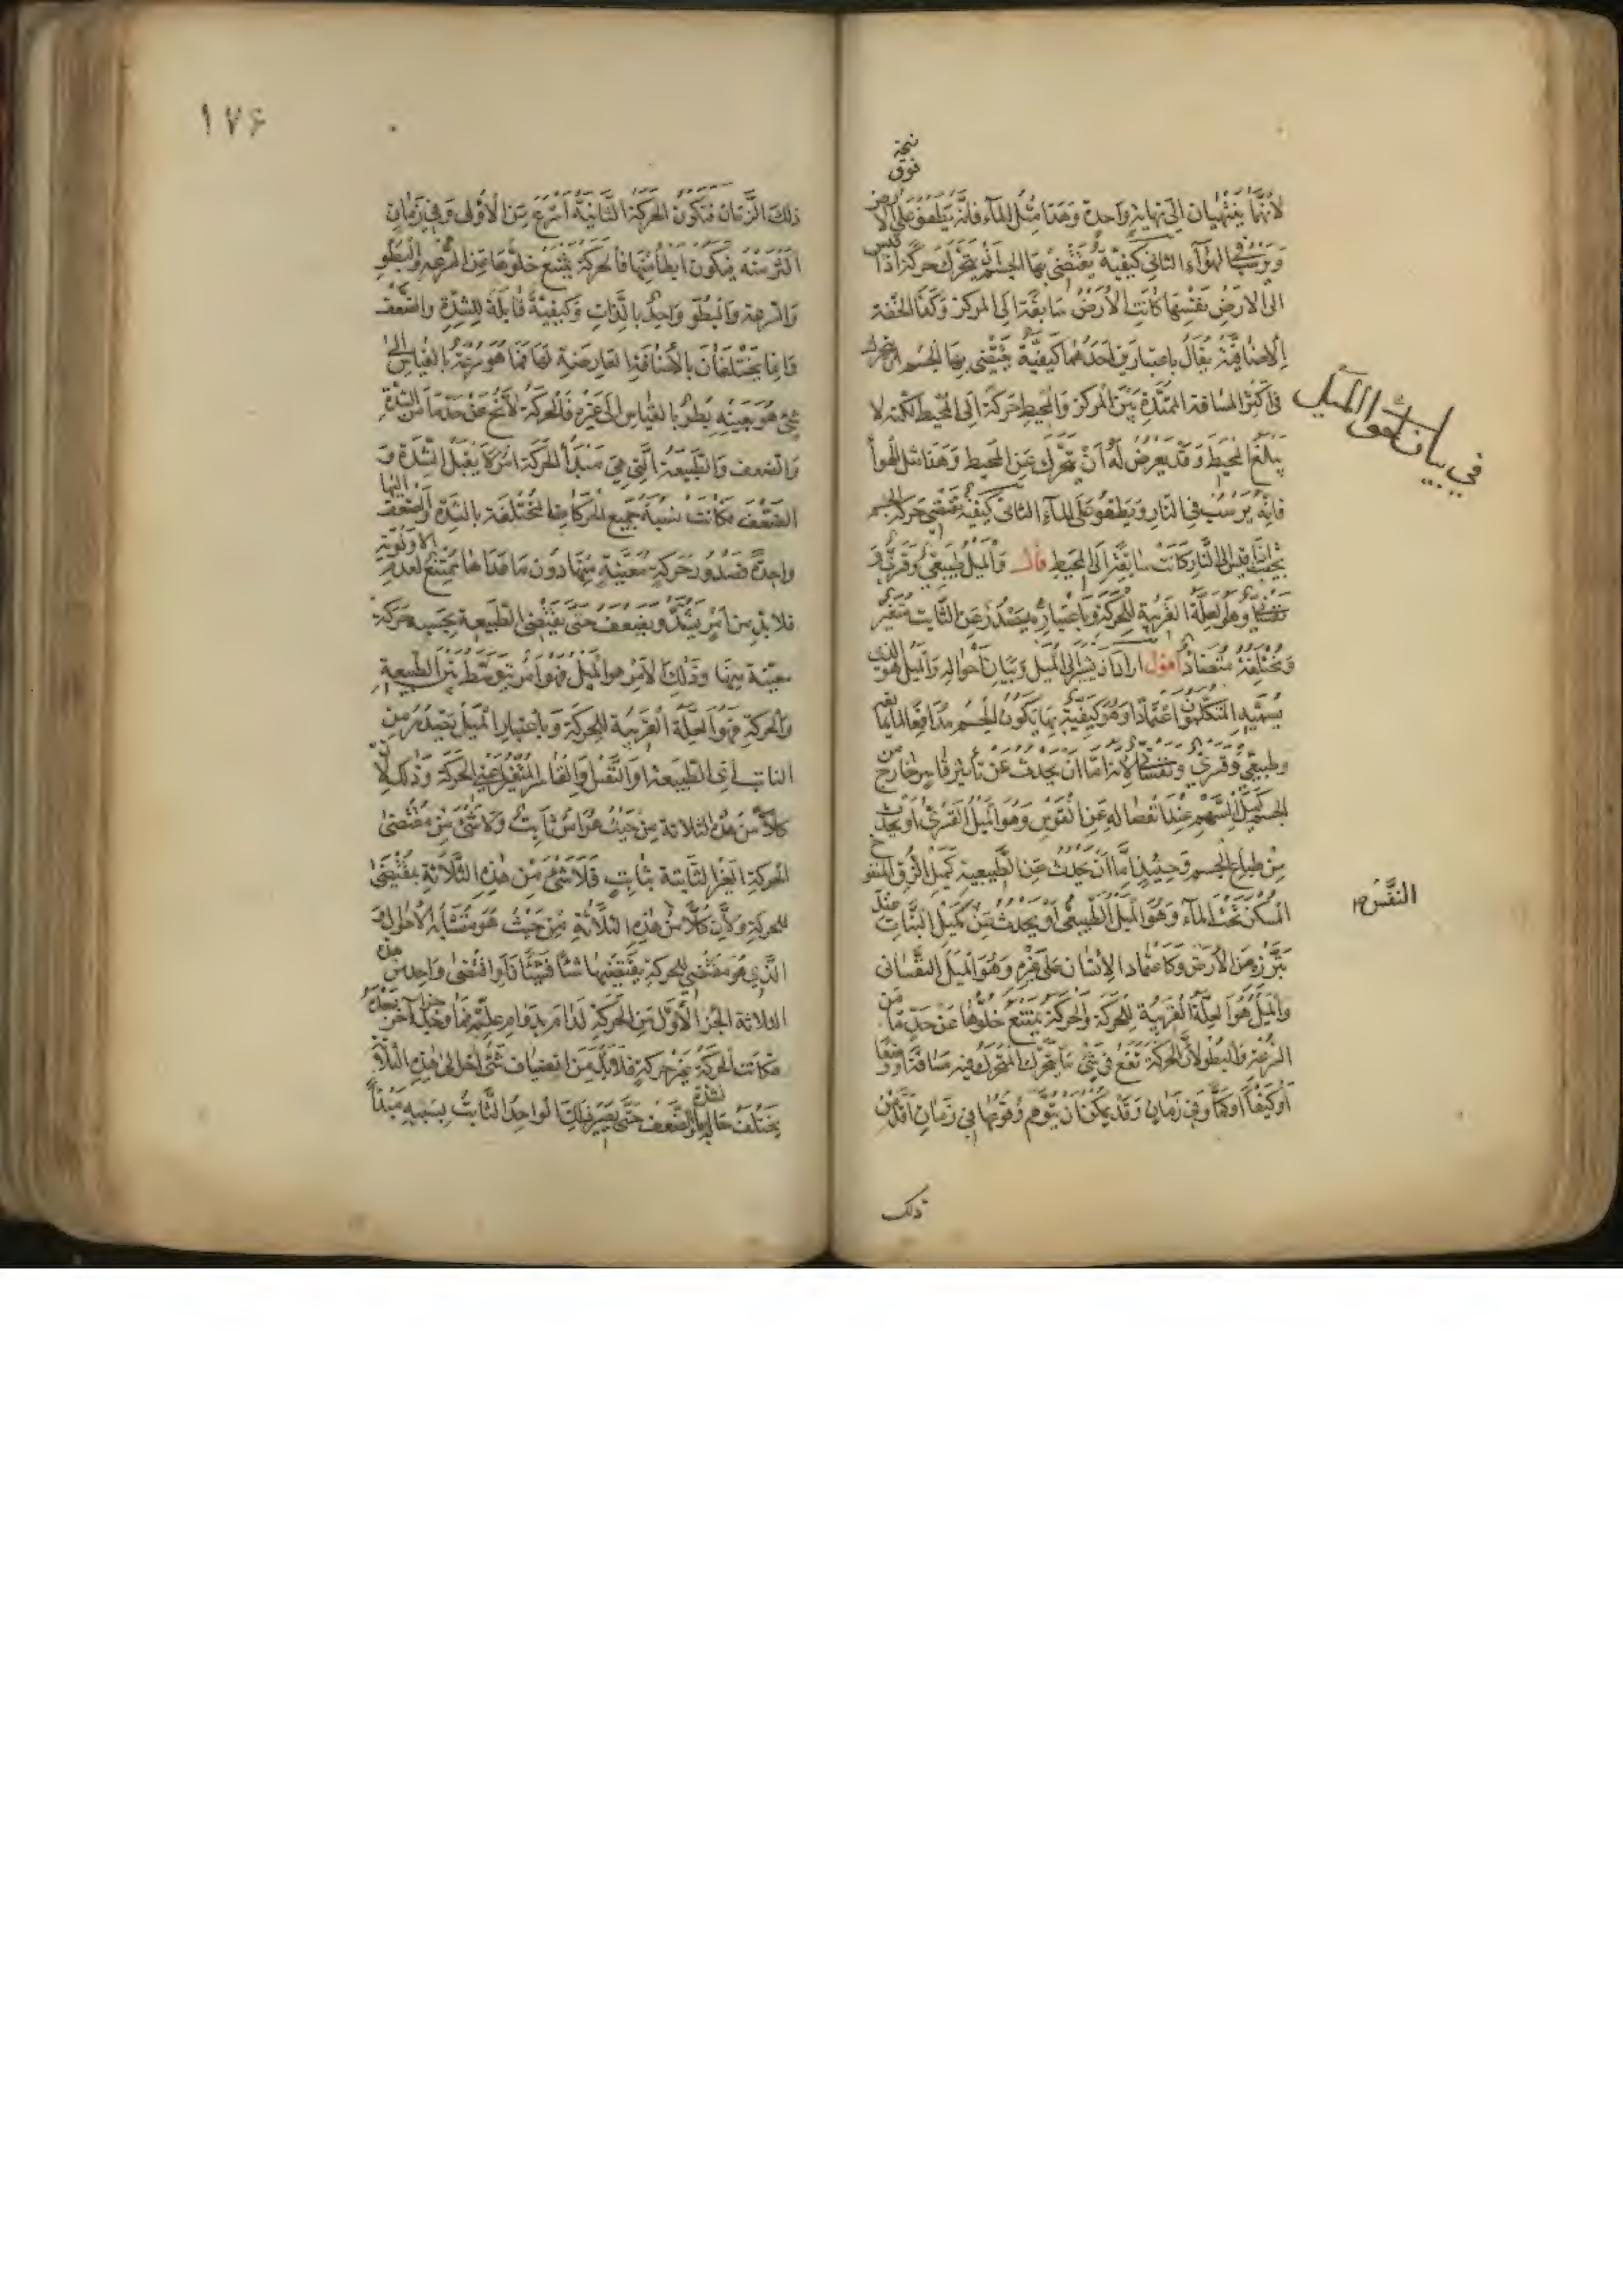 نسخة
فوق
لأنهما ينتهيان إلى نهاية واحدة وهذا مثل الماء فانه يطفو على الأرض
ويرسب في الهواء الثاني كيفية يقتضى بها الجسم ان يتحرك حركة اذا قيس
الى الارض نفسها كانت الأرض سابقة الى المركز وكذا الخفة
الاضافية يقال باعتبارين احدهما كيفية يقتضى بها الجسم ان يتحرك
في اكثر المسافة الممتدة بين المركز والمحيط حركة الى المحيط لكنه لا
يبلغ المحيط وقد يعرض له ان يتحرك عن المحيط وهذا مثل الهوأ
فانه يرسب في النار ويطفو على الماء الثانى كيفية يقتضى حركة الجسم
بحيث اذا قيس الى النار كانت سابقة الى المحيط قال والميل طبيعي وقسرى و
نفسانى وهو العلة القريبة للحركة وباعتباره يصدر عن الثابت متغير
ومختلفه متضاد أقول اراد ان يشير الى الميل وبيان احواله والميل هو الذي
يسميه المتكلمون اعتمادا وهو كيفية بها يكون الجسم مدافعا لما يمانعه
وطبيعي وقسرى ونفسانى لانه اما ان يحدث عن تأثير قاسر خارج من
الجسم كميل السهم عند انفصاله عن القوس وهو الميل القسرى او يحدث
من طباع الجسم وحينئذ اما ان يحدث عن الطبيعية كميل الزق المنفوخ
المسكن تحت الماء وهو الميل الطبيعى او يحدث من كميل النبات عند
تبرزه من الأرض وكاعتماد الإنسان على غيره وهو الميل النفسانى
والميل هو العلة القريبة للحركة والحركة يمتنع خلوها عن حد ما من
السرعة والبطو لأن الحركة تقع في شئ ما يتحرك المتحرك فيه مسافة او وضعا
او كيفا او كما وفى زمان وقد يمكن ان يتوهم وقوعها في زمان اقل من
ذلك
في بيان لحوق الميل
النفس صح
١٧۶
ذلك الزمان فتكون الحركة الثانية أسرع من الأولى وفى زمان
اكثر منه فيكون ابطأ منها فالحركة يمتنع خلوها عن السرعة والبطو
والسرعة والبطو واحد بالذات وكيفية قابلة للشدة والضعف
وانما يختلفان بالأضافة العارضة لهما فما هو سرعة بالقياس الى
شئ هو بعينه بطو بالقياس الى غيره فالحركة لا تخ عن حد ما من الشدة
والضعف والطبيعة التي هي مبدأ الحركة امر لا يقبل الشدة و
الضعف فكانت نسبة جميع الحركات المختلفة بالشدة والضعف اليها
واحدة فصدور حركة معينة منها دون ما عداها ممتنع لعدم الاولوية
فلا بد من أمر يشتد ويضعف حتى يقتضى الطبيعة بحسبه حركة
معينة منها وذلك الأمر هو الميل فهو أمر يتوسط بين الطبيعة
والحركة فهو العلة القريبة للحركة وباعتبار الميل يصدر من
الثابت أى الطبيعة او النفس والقاسر المتغير أعني الحركة وذلك لأن
كلا من هذه الثلاثة من حيث هو امر ثابت ولا شئ من مقتضى
الحركة الغير الثابتة بثابت فلا شئ من هذه الثلاثة بمقتضى
للحركة ولأن كلا من هذه الثلاثة من حيث هو متشابه الاحوال و
الذي هو مقتضى للحركة يقتضيها شئا فشيئا فلو اقتضى واحد من هذه
الثلاثة الجزء الأول من الحركة لدام بدوام علته فما وجد جزء آخر بعده
فكانت الحركة غير حركة فلا بد من انضياف شئ آخر الى هذه الثلاثة
يختلف حاله بالشدة والضعف حتى يصير ذلك الواحد الثابت بسببه مبدأ